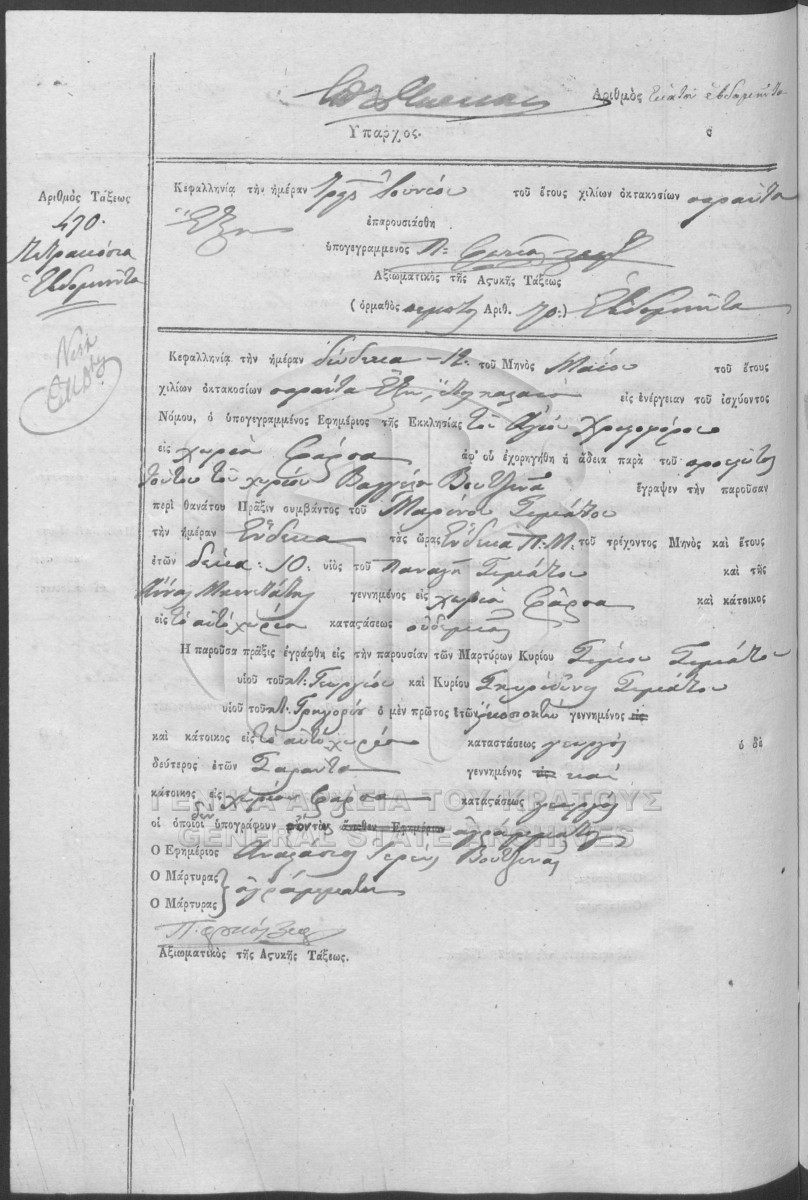 Αριθμὸς ἑκατὸν ἑβδομῆντα
Υπαρχος.
Αριθμὸς Τάξεως
470.
Τετρακόσια
Ἑβδομῆντα
Κεφαλληνία τὴν ἡμέραν Ἰουνίου τοῦ ἔτους χιλίων ὀκτακοσίων σαράντα
ἕξη ἐπαρουσιάσθη
ὑπογεγραμμενος Π.
Αξιωματικὸς τῆς Αςυκῆς Τάξεως
(ὁρμαθὸς πεμπτος Αριθ. 70:) Ἑβδομῆντα
Κεφαλληνία τὴν ἡμέραν δώδεκα - 12. τοῦ Μηνὸς Μαΐου τοῦ ἔτους
χιλίων ὀκτακοσίων σαράντα ἕξη, εἰς ἐνέργειαν τοῦ ἰσχύοντος
Νόμου, ὁ ὑπογεγραμμένος Εφημέριος τῆς Εκκλησίας τοῦ Ἁγίου
εἰς χωρίον Φάρσα ἀφ' οὗ ἐχορηγήθη ἡ ἄδεια παρὰ τοῦ
τούτου τοῦ χωρίου Βαγγέλη Βουτζινᾶ ἔγραψεν τὴν παροῦσαν
περὶ θανάτου Πρᾶξιν συμβάντος τοῦ Μαρίνου Τζιμάτου
τὴν ἡμέραν Ἕνδεκα τὰς ὥρας Ἕνδεκα Π:Μ. τοῦ τρέχοντος Μηνὸς καὶ ἔτους
ἐτῶν δέκα: 10: υἱὸς τοῦ Παναγῆ Τζιμάτου καὶ τῆς
Ἄννας γεννημένος εἰς χωρίον Φάρσα καὶ κάτοικος
εἰς τὸ αὐτὸ χωρίον καταςάσεως οὐδεμιᾶς
Η παροῦσα πρᾶξις ἐγράφθη εἰς τὴν παρουσίαν τῶν Μαρτύρων Κυρίου Τζιμάτου
υἱοῦ τοῦ π. Γεωργίου καὶ Κυρίου Σπυρίδωνος Τζιμάτου
υἱοῦ τοῦ π. Γρηγορίου ὁ μὲν πρῶτος ἐτῶν εἰκοσιοκτὼ γεννημένος εἰς
καὶ κάτοικος εἰς τὸ αὐτὸ χωρίον καταστάσεως γεωργὸς ὁ δὲ
δεύτερος ἐτῶν Σαράντα γεννημένος εἰς καὶ
κάτοικος εἰς χωρίον Φάρσα καταςάσεως γεωργὸς
οἱ ὁποῖοι δὲν ὑπογράφουν ὄντες ἀγράμματοι
Ο Εφημέριος Ἀναστάσιος Ἱερεὺς Βουτζινᾶς
Ο Μάρτυρας
Ο Μάρτυρας ἀγράμματοι
Αξιωματικὸς τῆς Αςυκῆς Τάξεως.
ΓΕΝΙΚΑ ΑΡΧΕΙΑ ΤΟΥ ΚΡΑΤΟΥΣ
GENERAL STATE ARCHIVES